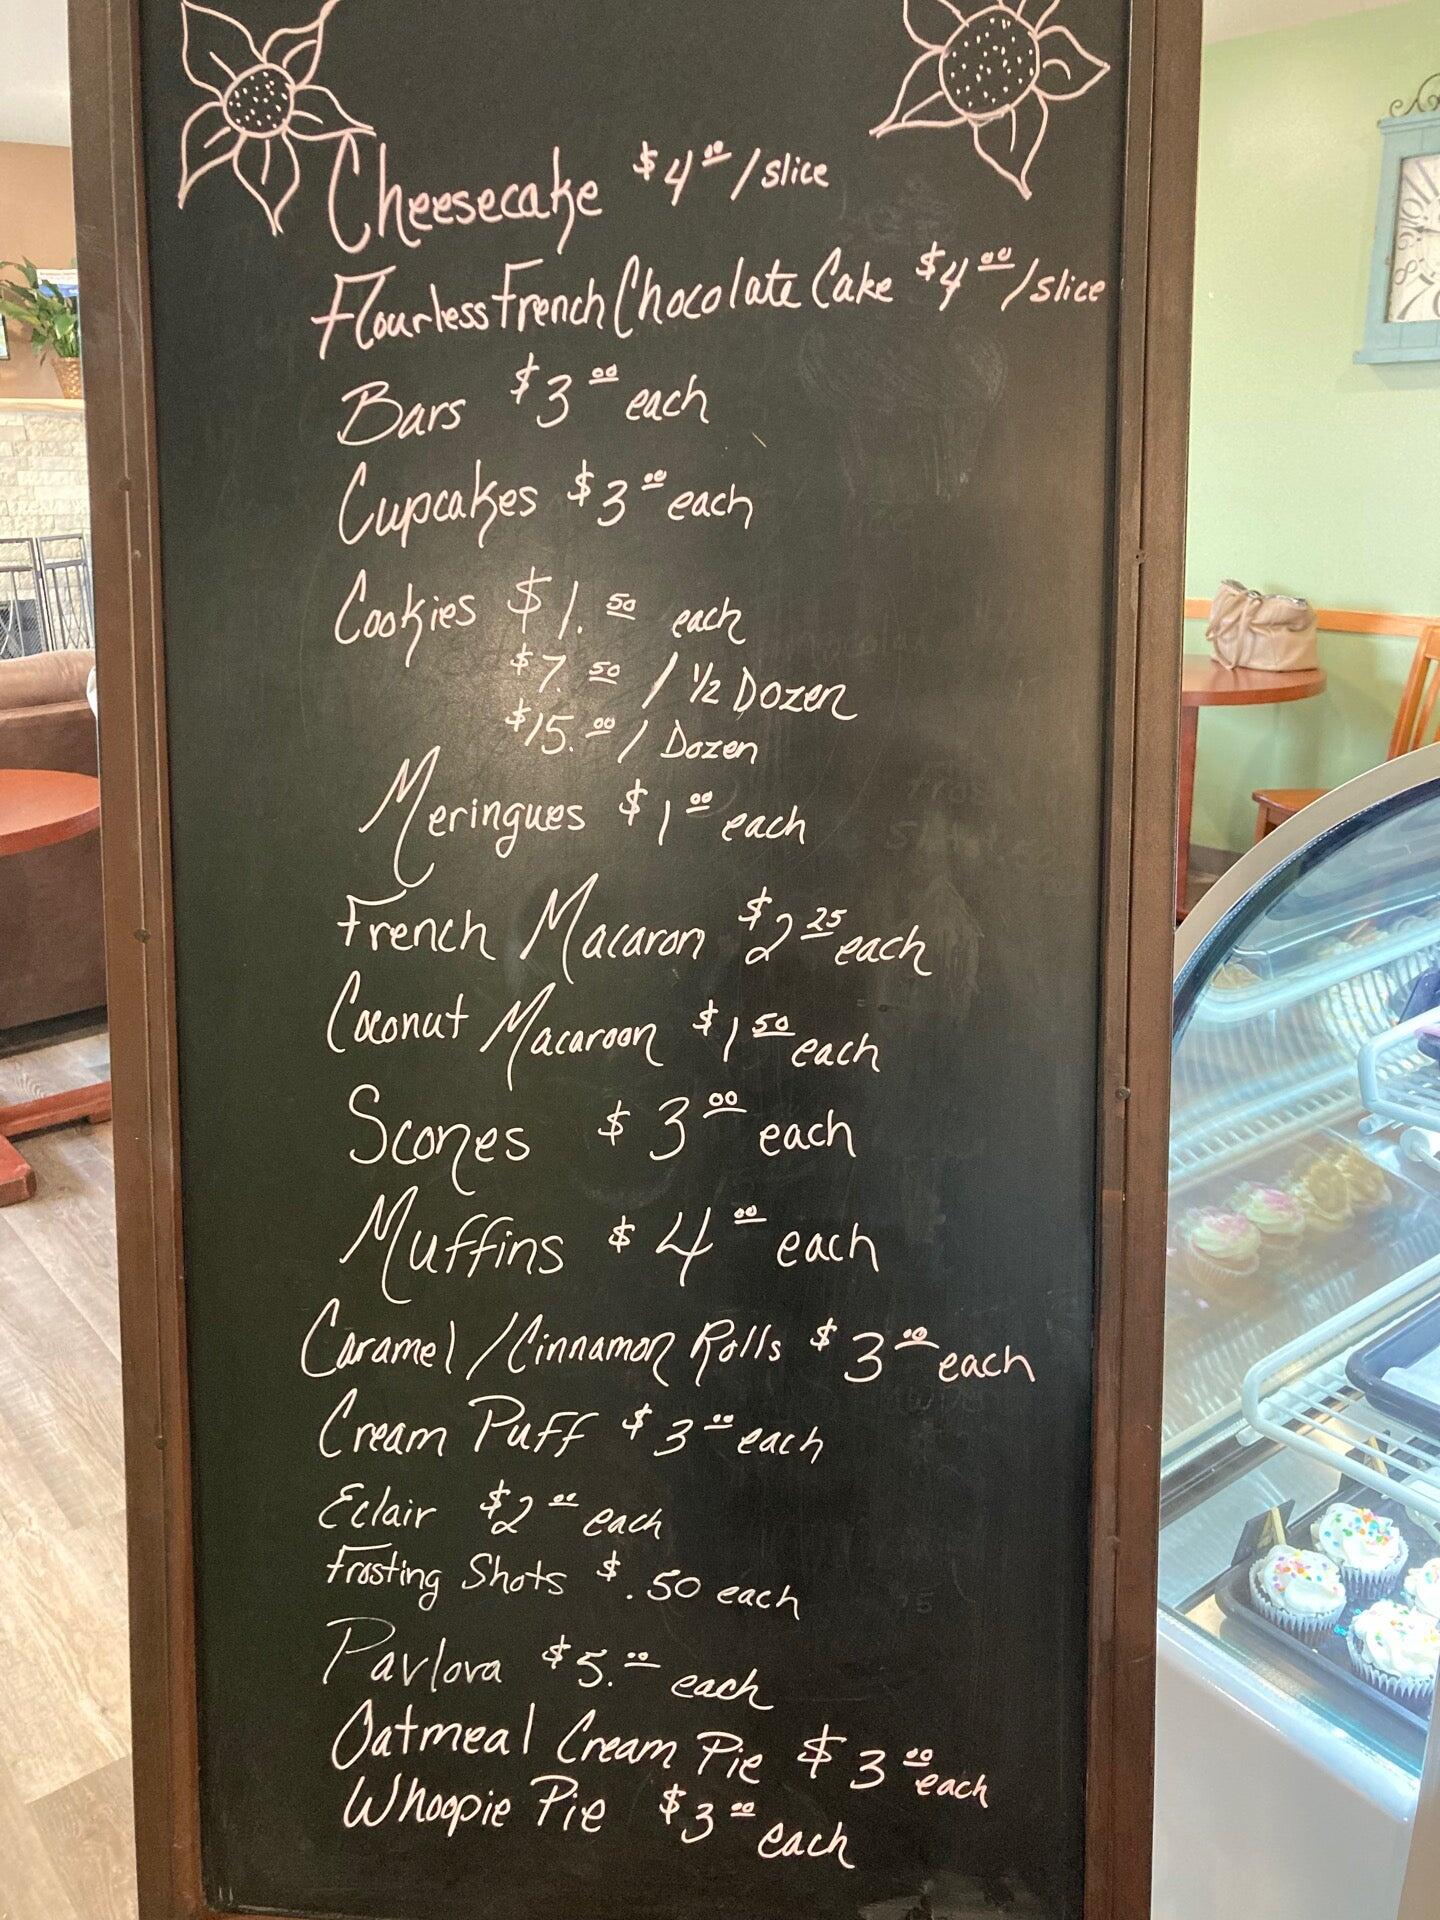 Cheesecake $4.00/slice
Flourless French Chocolate Cake $4.00/slice
Bars $3.00 each
Cupcakes $3.00 each
Cookies $1.50 each
$7.50 / 1/2 Dozen
$15.00 / Dozen
Meringues $1.00 each
French Macaron $2.25 each
Coconut Macaroon $1.50 each
Scones $3.00 each
Muffins $4.00 each
Caramel/Cinnamon Rolls $3.00 each
Cream Puff $3.00 each
Eclair $2.00 each
Frosting Shots $.50 each
Pavlova $5.00 each
Oatmeal Cream Pie $3.00 each
Whoopie Pie $3.00 each